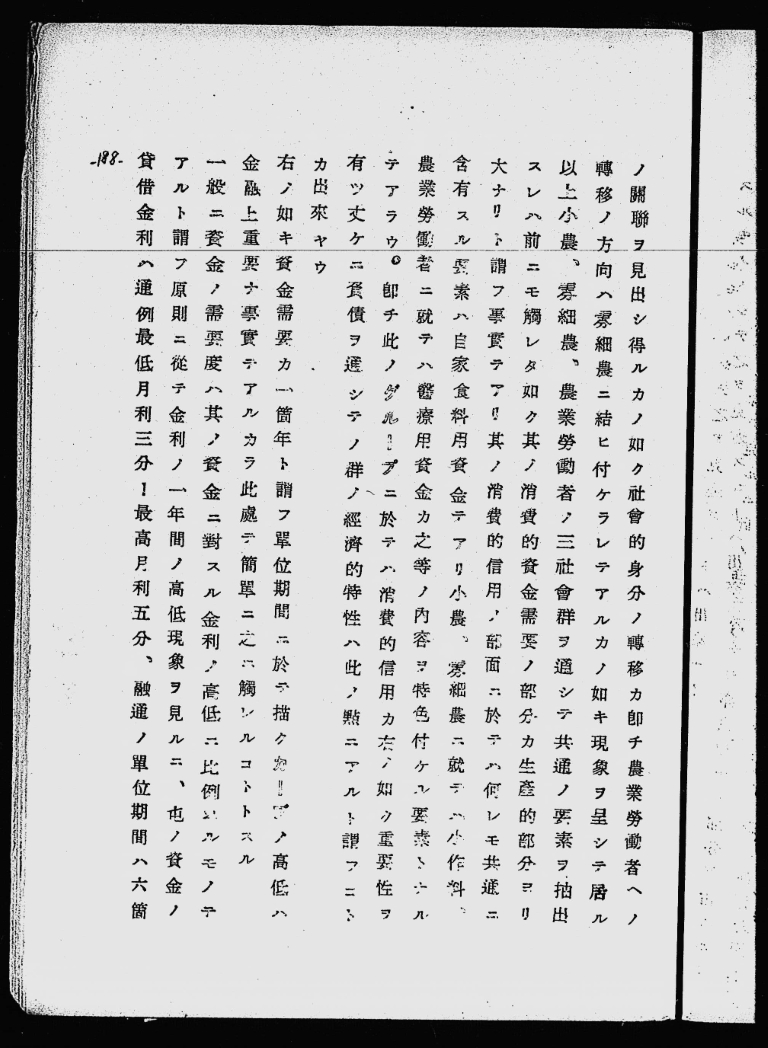 ノ關聯ヲ見出シ得ルカノ如ク社會的身分ノ轉移カ卽チ農業勞働者ヘノ
轉移ノ方向ハ零細農ニ結ヒ付ケラレテアルカノ如キ現象ヲ呈シテ居ル
以上小農、零細農、農業勞働者ノ三社會群ヲ通シテ共通ノ要素ヲ抽出
スレハ前ニモ觸レタ如ク其ノ消費的資金需要ノ部分カ生產的部分ヨリ
大ナリト謂フ事實テアリ其ノ消費的信用ノ部面ニ於テハ何レモ共通ニ
含有スル要素ハ自家食料用資金テアリ小農、零細農ニ就テハ小作料、
農業勞働者ニ就テハ醫療用資金カ之等ノ內容ヲ特色付ケル要素トナル
テアラウ。卽チ此ノグループニ於テハ消費的信用カ右ノ如ク重要性ヲ
有ツ丈ケニ貸債ヲ通シテノ群ノ經濟的特性ハ此ノ點ニアルト謂フコト
カ出來ヤウ
右ノ如キ資金需要カ一箇年ト謂フ單位期間ニ於テ描クカーブノ高低ハ
金融上重要ナ事實テアルカラ此處テ簡單ニ之ニ觸レルコトトスル
一般ニ資金ノ需要度ハ其ノ資金ニ對スル金利ノ高低ニ比例スルモノテ
アルト謂フ原則ニ從テ金利ノ一年間ノ高低現象ヲ見ルニ、屯ノ資金ノ
貸借金利ハ通例最低月利三分ー最高月利五分、融通ノ單位期間ハ六箇
-188-